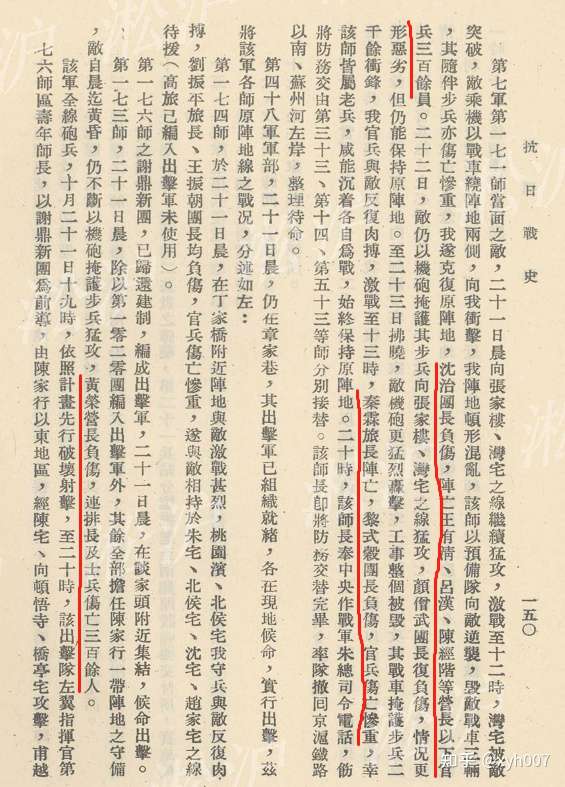 抗日戰史
一五〇
第七軍第一七一師當面之敵，二十一日晨向張家樓、灣宅之線繼續猛攻，激戰至十二時，灣宅被敵
突破，敵乘機以戰車繞陣地兩側，向我衝擊，我陣地頓形混亂，該師以預備隊向敵逆襲，毀敵戰車三輛
，其隨伴步兵亦傷亡慘重，我遂克復原陣地，沈治團長負傷，陣亡王有清、呂漢、陳經階等營長以下官
兵三百餘員。二十二日，敵仍以機砲掩護其步兵向張家樓、灣宅之線猛攻，顏僧武團長復負傷，情況更
形惡劣，但仍能保持原陣地。至二十三日拂曉，敵機砲更猛烈轟擊，工事整個被毀，其戰車掩護步兵二
千餘衝鋒，我官兵與敵反復肉搏，激戰至十三時，秦霖旅長陣亡，黎式穀團長負傷，官兵傷亡慘重，幸
該師皆屬老兵，咸能沉着各自爲戰，始終保持原陣地。二十時，該師長奉中央作戰軍朱總司令電話，飭
將防務交由第三十三、第十四、第五十三等師分別接替。該師長卽將防務交替完畢，率隊撤回京滬鐵路
以南、蘇州河左岸，整理待命。
第四十八軍軍部，二十一日晨，仍在章家巷，其出擊軍已組織就緒，各在現地候命，實行出擊，茲
將該軍各師原陣地線之戰況，分述如左：
第一七四師，於二十一日晨，在丁家橋附近陣地與敵激戰甚烈，桃園濱、北侯宅我守兵與敵反復肉
搏，劉振平旅長、王振朝團長均負傷，官兵傷亡慘重，遂與敵相持於朱宅、北侯宅、沈宅、趙家宅之線
待援（高旅已編入出擊軍未使用）。
第一七六師之謝鼎新團，已歸還建制，編成出擊軍，二十一日晨，在談家頭附近集結，候命出擊。
第一七三師，二十一日晨，除以第一零二零團編入出擊軍外，其餘全部擔任陳家行一帶陣地之守備
，敵自晨迄黃昏，仍不斷以機砲掩護步兵猛攻，黃榮營長負傷，連排長及士兵傷亡三百餘人。
該軍全線砲兵，十月二十一日十九時，依照計畫先行破壞射擊，至二十時，該出擊隊左翼指揮官第
七六師區壽年師長，以謝鼎新團爲前導，由陳家行以東地區，經陳宅、向頓悟寺、橋亭宅攻擊，甫越
淞滬
知乎 @yyh007